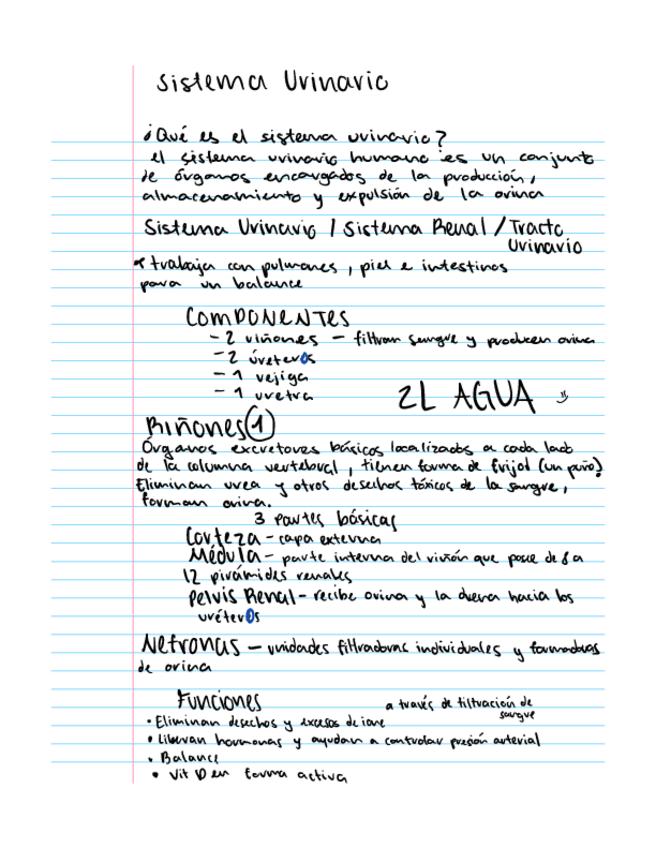 Sistema Urinario
¿Qué es el sistema urinario?
el sistema urinario humano es un conjunto
de órganos encargados de la producción,
almacenamiento y expulsión de la orina
Sistema Urinario / Sistema Renal / Tracto
Urinario
* trabaja con pulmones, piel e intestinos
para un balance
COMPONENTES
- 2 riñones - filtran sangre y producen orina
- 2 úreteros
- 1 vejiga
- 1 uretra
2L AGUA
Riñones 1
Órganos excretores básicos localizados a cada lado
de la columna vertebral, tienen forma de frijol (un puño)
Eliminan urea y otros desechos tóxicos de la sangre,
forman orina.
3 partes básicas
Corteza - capa externa
Médula - parte interna del riñón que posee de 8 a
12 pirámides renales
Pelvis Renal - recibe orina y la drena hacia los
uréteros
Nefronas - unidades filtradoras individuales y formadoras
de orina
Funciones
a través de filtración de
sangre
• Eliminan desechos y excesos de ione
• Liberan hormonas y ayudan a controlar presión arterial
• Balance
• Vit D en forma activa